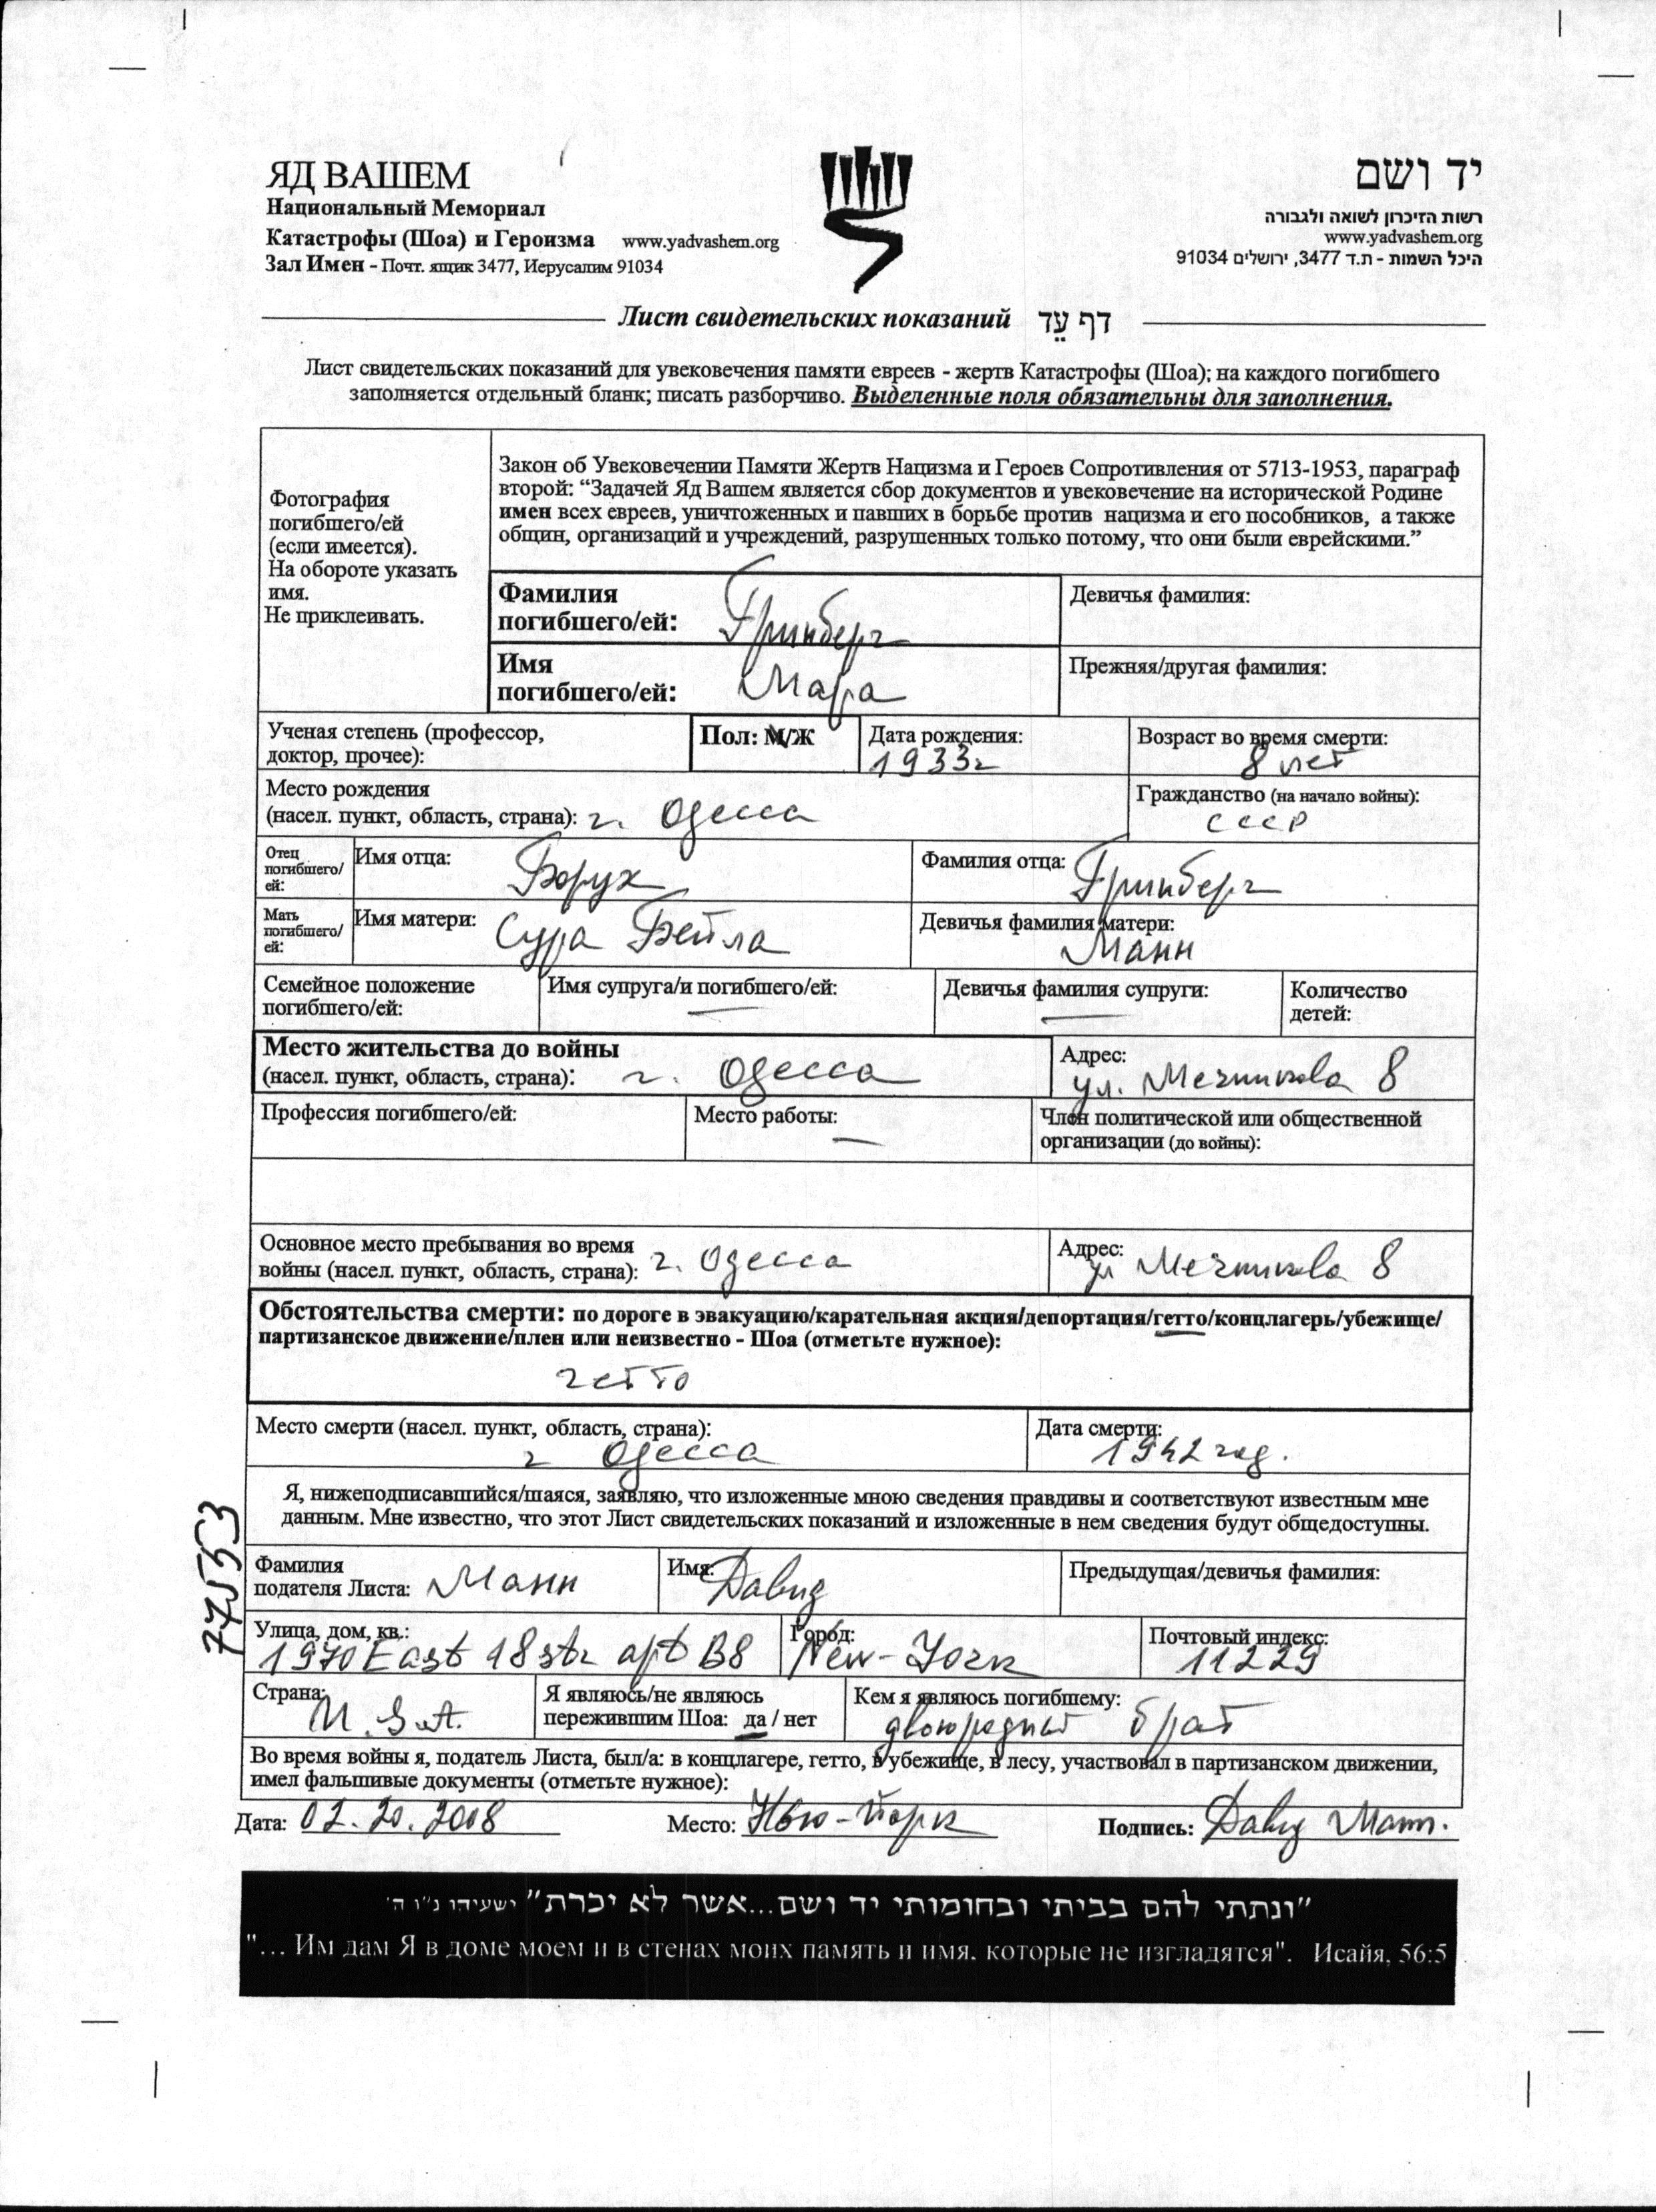 ЯД ВАШЕМ
Национальный Мемориал
Катастрофы (Шоа) и Героизма www.yadvashem.org
Зал Имен - Почт. ящик 3477, Иерусалим 91034
יד ושם
רשות הזיכרון לשואה ולגבורה
www.yadvashem.org
היכל השמות - ת.ד 3477, ירושלים 91034
Лист свидетельских показаний דף עֵד
Лист свидетельских показаний для увековечения памяти евреев - жертв Катастрофы (Шоа); на каждого погибшего
заполняется отдельный бланк; писать разборчиво. Выделенные поля обязательны для заполнения.
Фотография
погибшего/ей
(если имеется).
На обороте указать
имя.
Не приклеивать.
Закон об Увековечении Памяти Жертв Нацизма и Героев Сопротивления от 5713-1953, параграф
второй: “Задачей Яд Вашем является сбор документов и увековечение на исторической Родине
имен всех евреев, уничтоженных и павших в борьбе против нацизма и его пособников, а также
общин, организаций и учреждений, разрушенных только потому, что они были еврейскими.”
Фамилия
погибшего/ей: Гринберг
Девичья фамилия:
Имя
погибшего/ей: Мара
Прежняя/другая фамилия:
Ученая степень (профессор,
доктор, прочее):
Пол: М/Ж
Дата рождения:
1933г
Возраст во время смерти:
8 лет
Место рождения
(насел. пункт, область, страна): г. Одесса
Гражданство (на начало войны):
СССР
Отец
погибшего/
ей:
Имя отца: Борух
Фамилия отца: Гринберг
Мать
погибшего/
ей:
Имя матери: Сура Бейла
Девичья фамилия матери:
Манн
Семейное положение
погибшего/ей:
Имя супруга/и погибшего/ей:
—
Девичья фамилия супруги:
—
Количество
детей:
Место жительства до войны
(насел. пункт, область, страна): г. Одесса
Адрес:
ул. Мечникова 8
Профессия погибшего/ей:
Место работы:
—
Член политической или общественной
организации (до войны):
Основное место пребывания во время
войны (насел. пункт, область, страна): г. Одесса
Адрес:
ул Мечникова 8
Обстоятельства смерти: по дороге в эвакуацию/карательная акция/депортация/гетто/концлагерь/убежище/
партизанское движение/плен или неизвестно - Шоа (отметьте нужное):
гетто
Место смерти (насел. пункт, область, страна):
г Одесса
Дата смерти:
1942 год.
Я, нижеподписавшийся/шаяся, заявляю, что изложенные мною сведения правдивы и соответствуют известным мне
данным. Мне известно, что этот Лист свидетельских показаний и изложенные в нем сведения будут общедоступны.
77553
Фамилия
подателя Листа: Манн
Имя: Давид
Предыдущая/девичья фамилия:
Улица, дом, кв.:
1970 East 18 str apt B8
Город:
New-York
Почтовый индекс:
11229
Страна:
U.S.A.
Я являюсь/не являюсь
пережившим Шоа: да / нет
Кем я являюсь погибшему:
двоюродный брат
Во время войны я, податель Листа, был/а: в концлагере, гетто, в убежище, в лесу, участвовал в партизанском движении,
имел фальшивые документы (отметьте нужное):
Дата: 02.20.2008
Место: Нью-Йорк
Подпись: Давид Манн.
"ונתתי להם בביתי ובחומותי יד ושם...אשר לא יכרת" ישעיהו נ"ו ה'
"... Им дам Я в доме моем и в стенах моих память и имя, которые не изгладятся". Исайя, 56:5